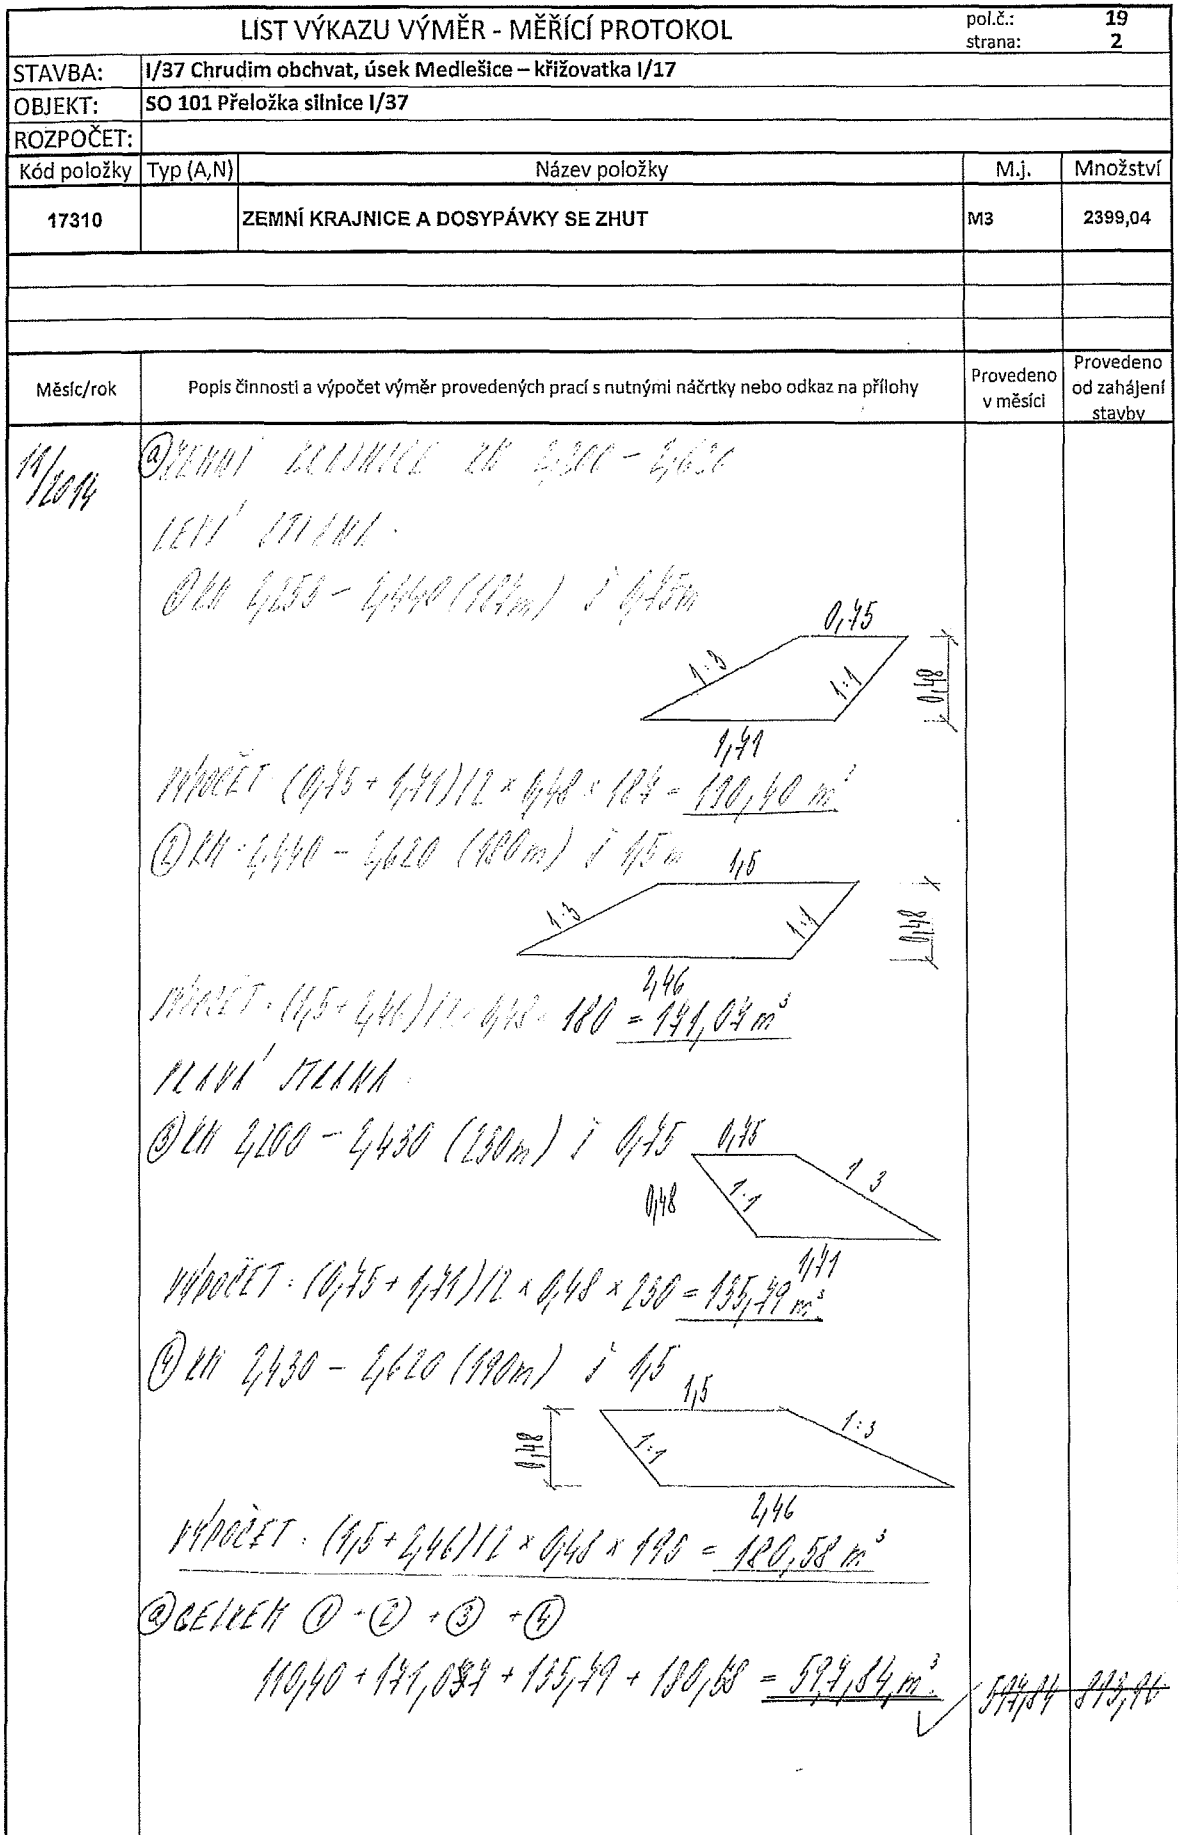 LIST VÝKAZU VÝMĚR - MĚŘÍCÍ PROTOKOL
pol.č.: 19
strana: 2
STAVBA: I/37 Chrudim obchvat, úsek Medlešice – křižovatka I/17
OBJEKT: SO 101 Přeložka silnice I/37
ROZPOČET:
Kód položky Typ (A,N) Název položky M.j. Množství
17310 ZEMNÍ KRAJNICE A DOSYPÁVKY SE ZHUT M3 2399,04
Měsíc/rok Popis činnosti a výpočet výměr provedených prací s nutnými náčrtky nebo odkaz na přílohy Provedeno v měsíci Provedeno od zahájení stavby
11/2014 ⓐ ZEMNÍ KRAJNICE KM - 2,620
LEVÁ STRANA.
① KM 2,253 - 2,440 (187m) š 0,75m
0,75
1:3 1:1 0,48
1,71
VÝPOČET: (0,75 + 1,71)/2 × 0,48 × 187 = 110,40 m³
② KM 2,440 - 2,620 (180m) š 1,5m
1,5
1:3 1:1 0,48
2,46
VÝPOČET: (1,5 + 2,46)/2 × 0,48 × 180 = 171,07 m³
PRAVÁ STRANA.
③ KM 2,200 - 2,430 (230m) š 0,75
0,75
0,48 1:1 1:3
1,71
VÝPOČET: (0,75 + 1,71)/2 × 0,48 × 230 = 135,79 m³
④ KM 2,430 - 2,620 (190m) š 1,5
1,5
0,48 1:1 1:3
2,46
VÝPOČET: (1,5 + 2,46)/2 × 0,48 × 190 = 180,58 m³
ⓐ CELKEM ① + ② + ③ + ④
110,40 + 171,07 + 135,79 + 180,58 = 597,84 m³ 597,84 813,96